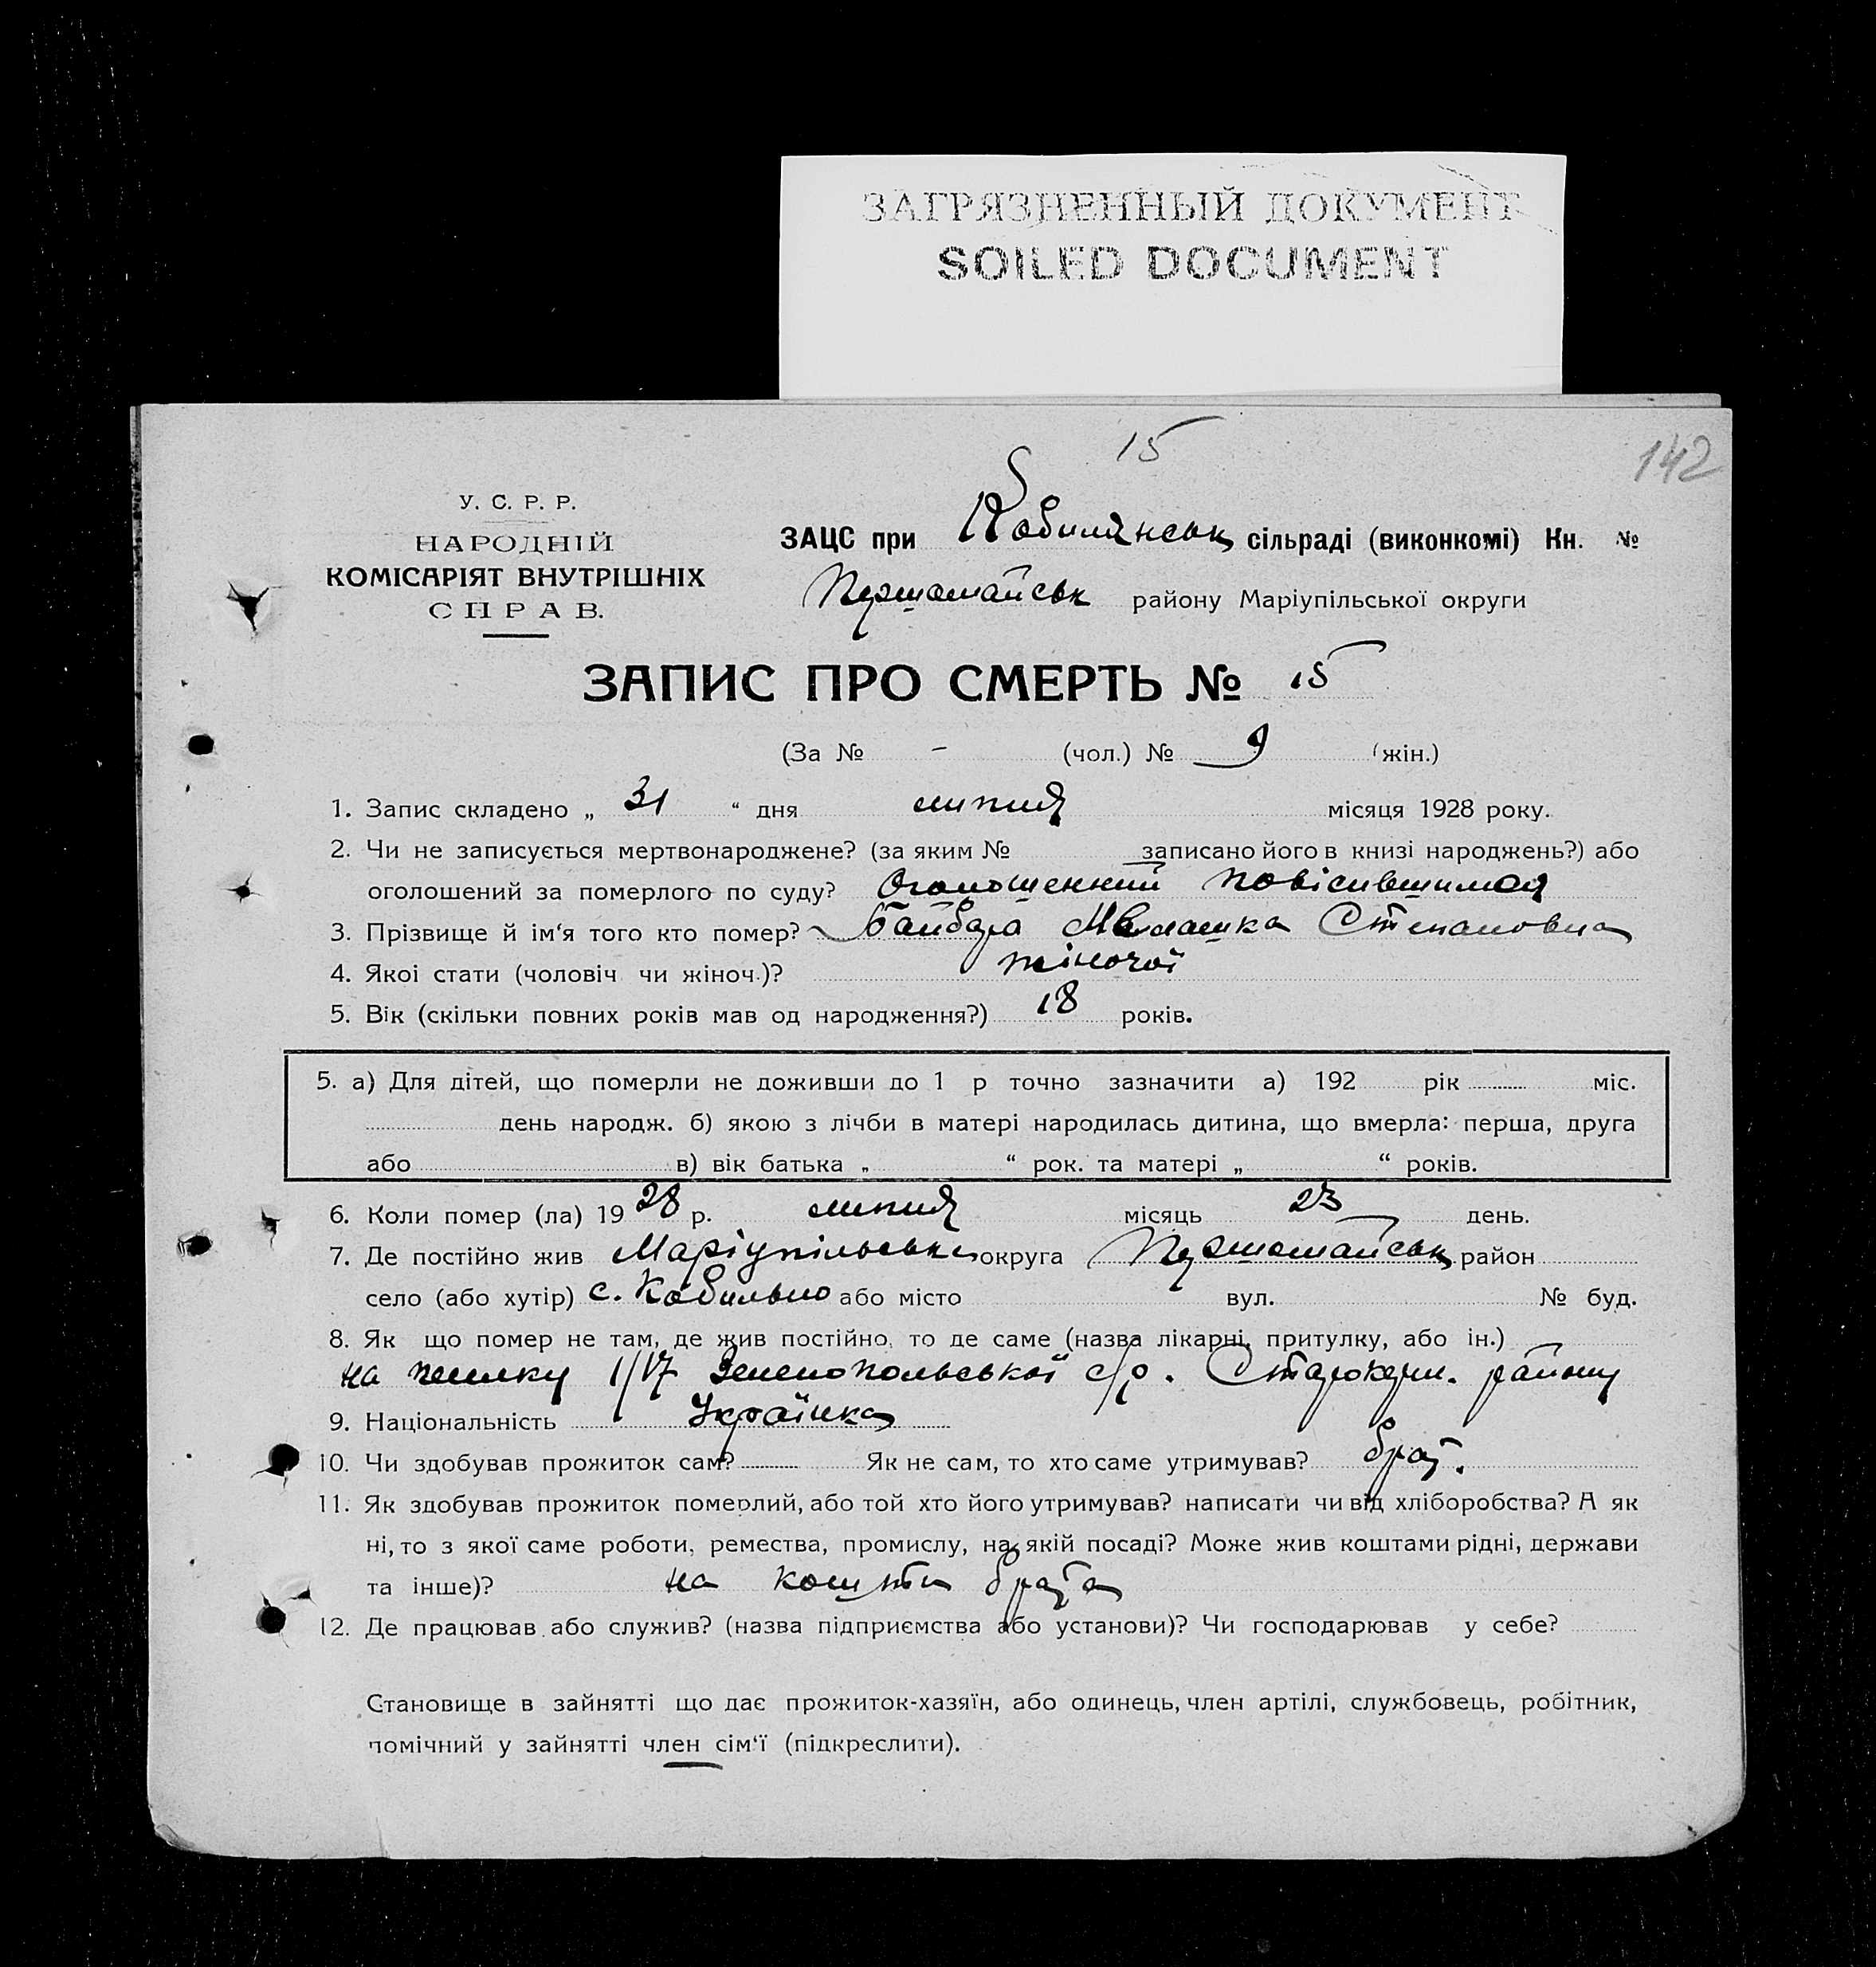 ЗАГРЯЗНЕННЫЙ ДОКУМЕНТ
SOILED DOCUMENT
15
142
У. С. Р. Р.
НАРОДНІЙ
КОМІСАРІЯТ ВНУТРІШНІХ
СПРАВ.
ЗАЦС при Кобилянськ сільраді (виконкомі) Кн. №
Першомайськ району Маріупільської округи
ЗАПИС ПРО СМЕРТЬ № 15
(За № - (чол.) № 9 (жін.)
1. Запис складено „ 31 “ дня липня місяця 1928 року.
2. Чи не записується мертвонароджене? (за яким № записано його в книзі народжень?) або
оголошений за померлого по суду? Оголошенний повісившимся
3. Прізвище й ім‘я того кто помер? Байбара Малашка Степановна
4. Якоі стати (чоловіч чи жіноч.)? жіночої
5. Вік (скільки повних років мав од народження?) 18 років.
5. а) Для дітей, що померли не доживши до 1 р точно зазначити а) 192 рік міс.
день народж. б) якою з лічби в матері народилась дитина, що вмерла: перша, друга
або в) вік батька „ “ рок. та матері „ “ років.
6. Коли помер (ла) 1928 р. липня місяць 23 день.
7. Де постійно жив Маріупільськ округа Першомайськ район
село (або хутір) с. Кобильно або місто вул. № буд.
8. Як що помер не там, де жив постійно, то де саме (назва лікарні, притулку, або ін.)
на 1/17 Зеленопольської с/р. Старокерм. району
9. Національність Українка
10. Чи здобував прожиток сам? Як не сам, то хто саме утримував? брат.
11. Як здобував прожиток померлий, або той хто його утримував? написати чи від хліборобства? А як
ні, то з якої саме роботи, ремества, промислу, на якій посаді? Може жив коштами рідні, держави
та інше)? на кошти брата
12. Де працював або служив? (назва підприємства або установи)? Чи господарював у себе?
Становище в зайнятті що дає прожиток-хазяїн, або одинець, член артілі, службовець, робітник,
помічний у зайнятті член сім‘ї (підкреслити).